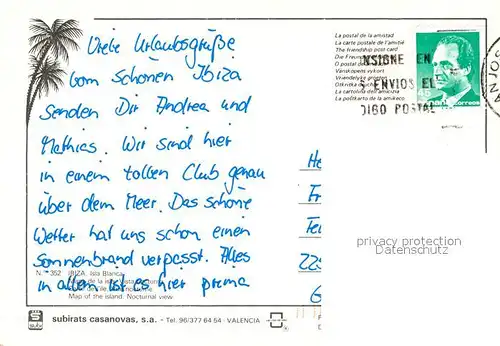 Viele Urlaubsgrüße
vom schönen Ibiza
senden Dir Andrea und
Mathias. Wir sind hier
in einem tollen Club genau
über dem Meer. Das schöne
Wetter hat uns schon einen
Sonnenbrand verpasst. Alles
in allem ist es hier prima
La postal de la amistad
La carte postale de l'amitié
The friendship post card
O postal da
Vänskapens vykort
Vriendelijke groeten
La cartolina dell'amicizia
La poŝtkarto de la amikeco
NSIGNE EN
S ENVIOS EL
DIGO POSTAL
45
correos
He
Fr
Fe
229
G
privacy protection
Datenschutz
N.º 352 IBIZA. Isla Blanca.
Map of the island. Nocturnal view
subi
subirats casanovas, s.a. - Tel. 96/377 64 54 - VALENCIA